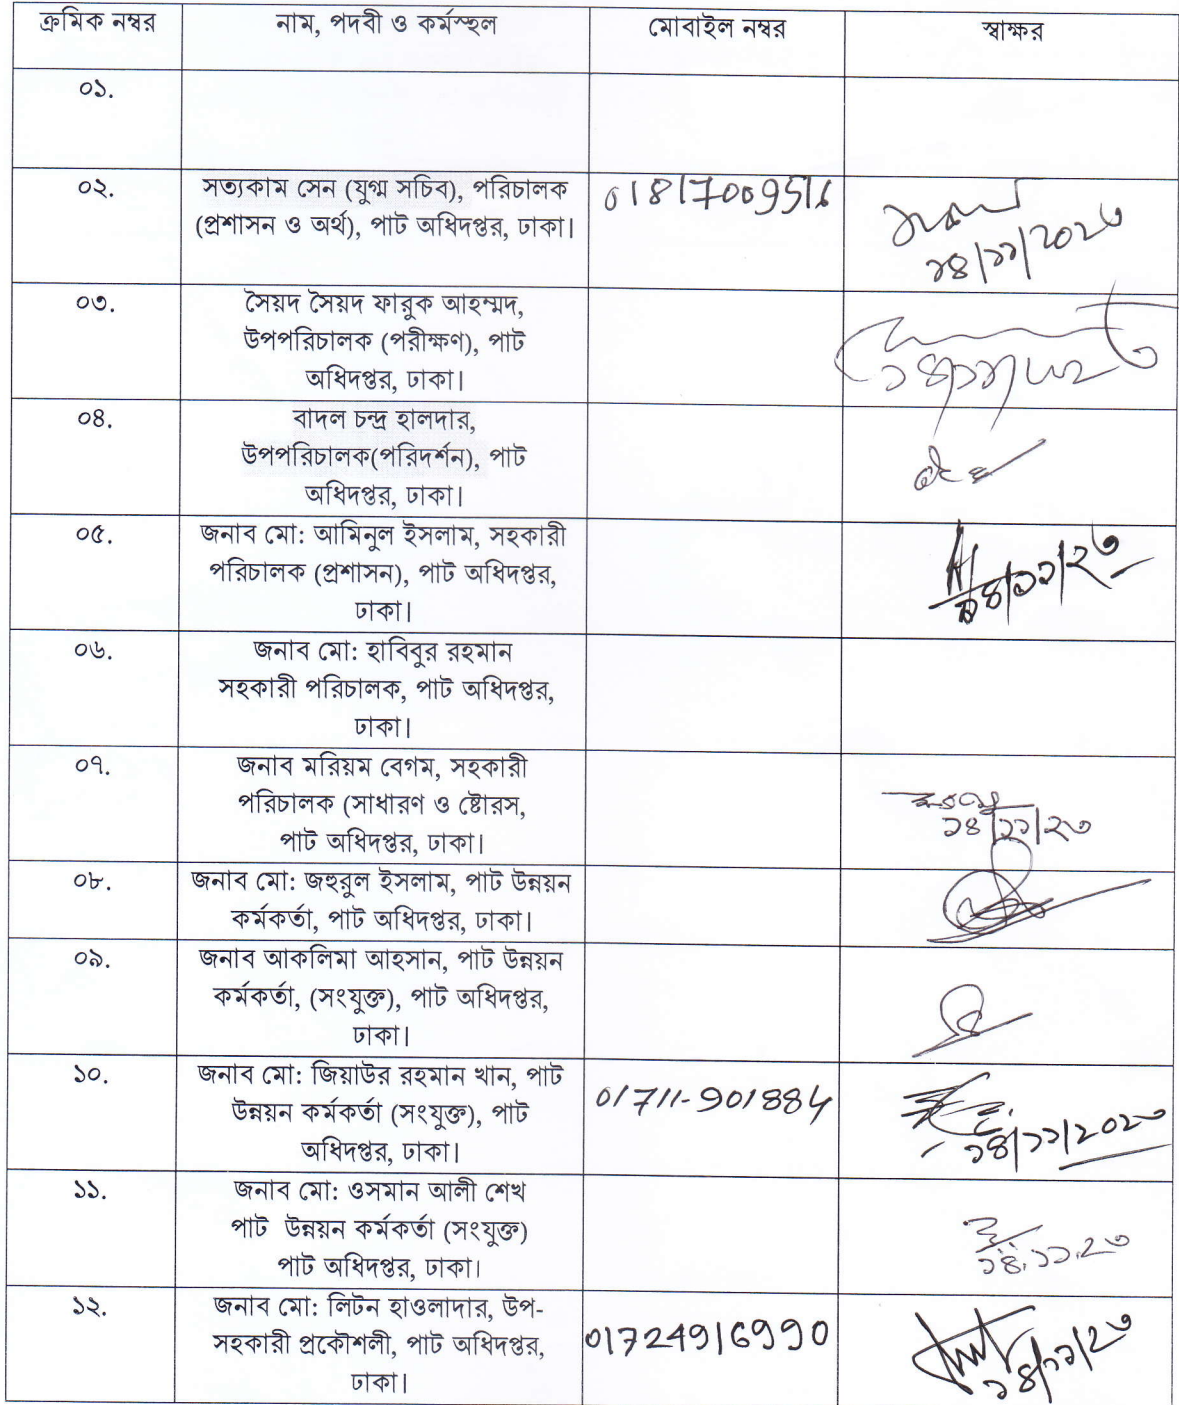 ক্রমিক নম্বর নাম, পদবী ও কর্মস্হল মোবাইল নম্বর স্বাক্ষর
০১.
০২. সত্যকাম সেন (যুগ্ম সচিব), পরিচালক 01817009516
(প্রশাসন ও অর্থ), পাট অধিদপ্তর, ঢাকা।
১৪/১১/২০২৩
০৩. সৈয়দ সৈয়দ ফারুক আহম্মদ,
উপপরিচালক (পরীক্ষণ), পাট
অধিদপ্তর, ঢাকা।
০৪. বাদল চন্দ্র হালদার,
উপপরিচালক(পরিদর্শন), পাট
অধিদপ্তর, ঢাকা।
০৫. জনাব মো: আমিনুল ইসলাম, সহকারী
পরিচালক (প্রশাসন), পাট অধিদপ্তর,
ঢাকা। ১৪/১১/২৩
০৬. জনাব মো: হাবিবুর রহমান
সহকারী পরিচালক, পাট অধিদপ্তর,
ঢাকা।
০৭. জনাব মরিয়ম বেগম, সহকারী
পরিচালক (সাধারণ ও ষ্টোরস,
পাট অধিদপ্তর, ঢাকা। ১৪/১১/২৩
০৮. জনাব মো: জহুরুল ইসলাম, পাট উন্নয়ন
কর্মকর্তা, পাট অধিদপ্তর, ঢাকা।
০৯. জনাব আকলিমা আহসান, পাট উন্নয়ন
কর্মকর্তা, (সংযুক্ত), পাট অধিদপ্তর,
ঢাকা।
১০. জনাব মো: জিয়াউর রহমান খান, পাট
উন্নয়ন কর্মকর্তা (সংযুক্ত), পাট 01711-901884
অধিদপ্তর, ঢাকা। ১৪/১১/২০২৩
১১. জনাব মো: ওসমান আলী শেখ
পাট উন্নয়ন কর্মকর্তা (সংযুক্ত)
পাট অধিদপ্তর, ঢাকা। ১৪.১১.২৩
১২. জনাব মো: লিটন হাওলাদার, উপ-
সহকারী প্রকৌশলী, পাট অধিদপ্তর, 01724916990
ঢাকা। ১৪/১১/২৩